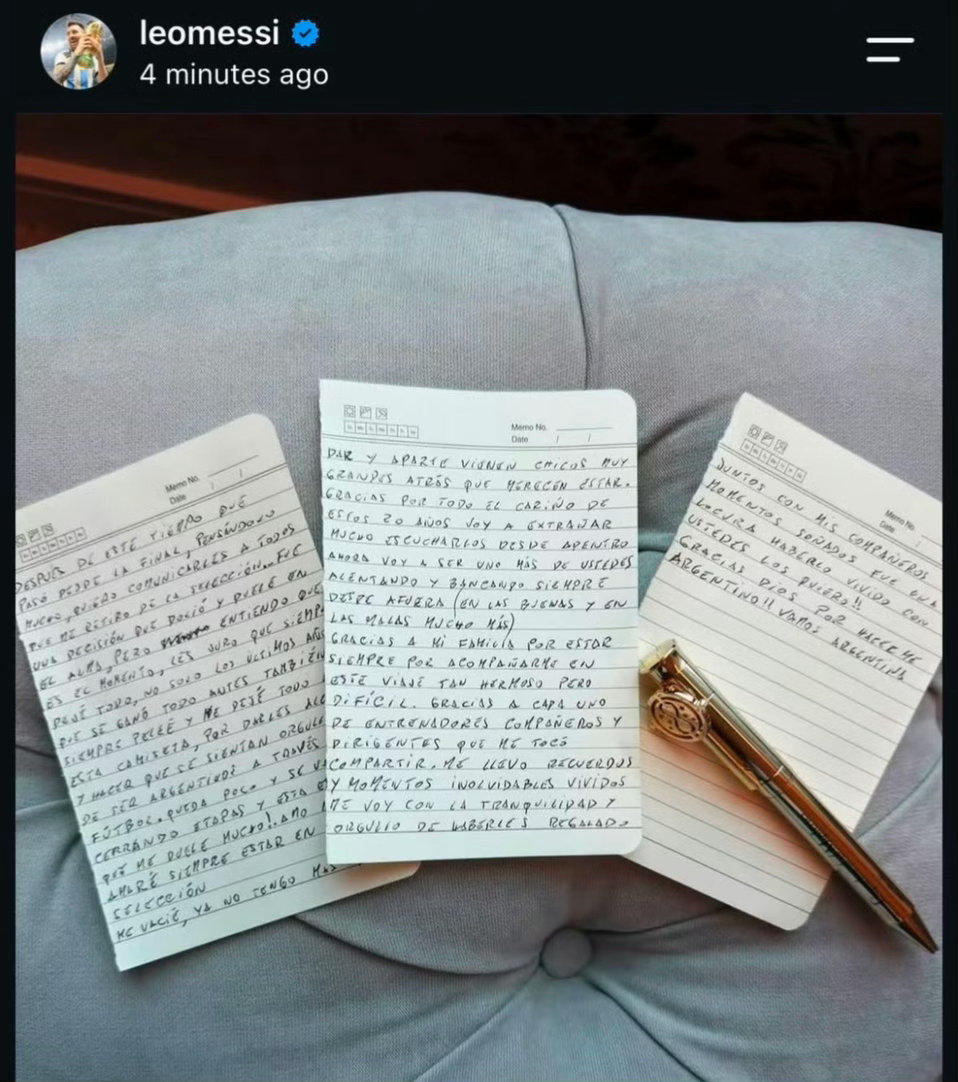 leomessi
4 minutes ago
Memo No.
Date / /
DESPUÉS DE ESTE TIEMPO QUE
PASÓ DESDE LA FINAL, PENSÁNDOLO
MUCHO, QUIERO COMUNICARLES A TODOS
QUE ME RETIRO DE LA SELECCIÓN.. FUE
UNA DECISIÓN QUE DOLIÓ Y DUELE EN
EL ALMA, PERO ENTIENDO QUE
ES EL MOMENTO, LES JURO QUE SIEMP
DEJÉ TODO, NO SOLO LOS ÚLTIMOS AÑOS
QUE SE GANÓ TODO ANTES TAMBIÉN
SIEMPRE PELEÉ Y ME DEJÉ TODO
ESTA CAMISETA, POR DARLES ALE
Y HACER QUE SE SIENTAN ORGULL
DE SER ARGENTINOS A TRAVÉS
FÚTBOL. QUEDA POCO Y SE VA
CERRANDO ETAPAS Y ESTA E
QUE ME DUELE MUCHO! AMO
AMARÉ SIEMPRE ESTAR EN
SELECCIÓN
ME VACIÉ, YA NO TENGO MÁS
Memo No.
Date / /
DAR Y APARTE VIENEN CHICOS MUY
GRANDES ATRÁS QUE MERECEN ESTAR.
GRACIAS POR TODO EL CARIÑO DE
ESTOS 20 AÑOS VOY A EXTRAÑAR
MUCHO ESCUCHARLOS DESDE ADENTRO
AHORA VOY A SER UNO MÁS DE USTEDES
ALENTANDO Y BANCANDO SIEMPRE
DESDE AFUERA (EN LAS BUENAS Y EN
LAS MALAS MUCHO MÁS)
GRACIAS A MI FAMILIA POR ESTAR
SIEMPRE POR ACOMPAÑARME EN
ESTE VIAJE TAN HERMOSO PERO
DIFÍCIL. GRACIAS A CADA UNO
DE ENTRENADORES COMPAÑEROS Y
DIRIGENTES QUE ME TOCÓ
COMPARTIR. ME LLEVO RECUERDOS
Y MOMENTOS INOLVIDABLES VIVIDOS
ME VOY CON LA TRANQUILIDAD Y
ORGULLO DE HABERLES REGALADO
Memo No.
Date /
JUNTOS CON MIS COMPAÑEROS
MOMENTOS SOÑADOS FUE UNA
LOCURA HABERLO VIVIDO CON
USTEDES LOS QUIERO!!
GRACIAS DIOS POR HACERME
ARGENTINO!! VAMOS ARGENTINA